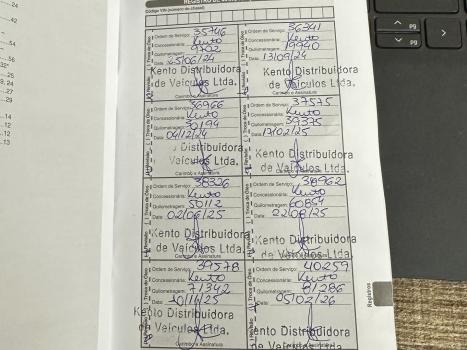 Código VIN (número do chassi)
Ordem de Serviço: 35746
Concessionária: Kento
Quilometragem: 9702
Data: 25/06/24
Kento Distribuidora
de Veículos Ltda.
Carimbo e Assinatura
Ordem de Serviço: 36341
Concessionária: Kento
Quilometragem: 19940
Data: 13/09/24
Kento Distribuidora
de Veículos Ltda.
Carimbo e Assinatura
Ordem de Serviço: 36966
Concessionária: Kento
Quilometragem: 30194
Data: 04/12/24
Distribuidora
Veículos Ltda.
Carimbo e Assinatura
Ordem de Serviço: 37575
Concessionária: Kento
Quilometragem: 39375
Data: 17/02/25
Kento Distribuidora
de Veículos Ltda.
Ordem de Serviço: 38326
Concessionária: Kento
Quilometragem: 50112
Data: 02/06/25
Kento Distribuidora
de Veículos Ltda.
Ordem de Serviço: 38962
Concessionária: Kento
Quilometragem: 60854
Data: 22/08/25
Kento Distribuidora
de Veículos Ltda.
Ordem de Serviço: 39578
Concessionária: Kento
Quilometragem: 71342
Data: 10/11/25
Kento Distribuidora
de Veículos Ltda.
Carimbo e Assinatura
Ordem de Serviço: 40259
Concessionária: Kento
Quilometragem: 81286
Data: 05/02/26
Kento Distribuidora
de Veículos Ltda.
Registros
PG
PG